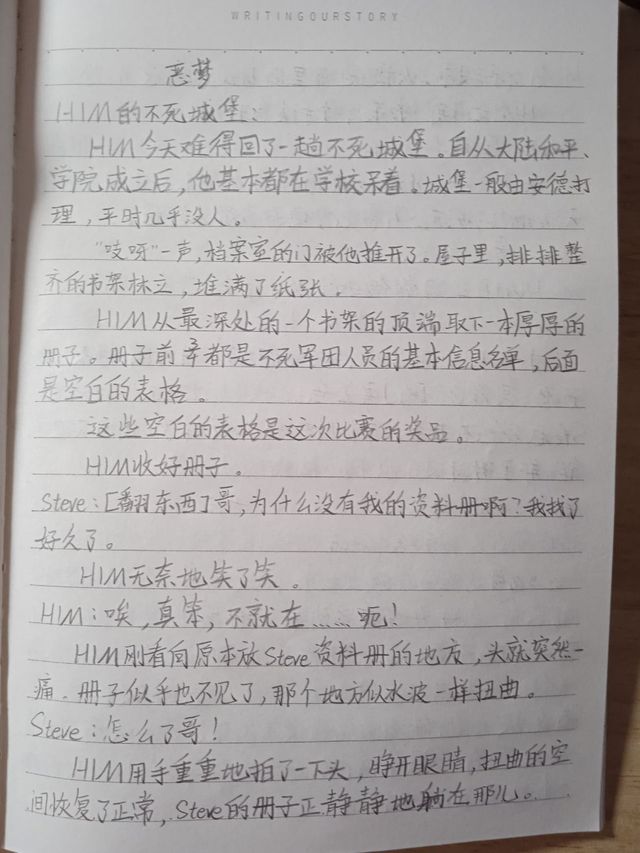 WRITINGOURSTORY
恶梦
HIM的不死城堡:
HIM今天难得回了一趟不死城堡。自从大陆和平、
学院成立后,他基本都在学校呆着。城堡一般由安德打
理,平时几乎没人。
“吱呀”一声,档案室的门被他推开了。屋子里,排排整
齐的书架林立,堆满了纸张。
HIM从最深处的一个书架的顶端取下一本厚厚的
册子。册子前章都是不死军团人员的基本信息名单,后面
是空白的表格。
这些空白的表格是这次比赛的奖品。
HIM收好册子。
Steve:[翻东西]哥,为什么没有我的资料册啊?我找了
好久了。
HIM无奈地笑了笑。
HIM:唉,真笨,不就在……呃!
HIM刚看向原本放Steve资料册的地方,头就突然一
痛。册子似乎也不见了,那个地方似水波一样扭曲。
Steve:怎么了哥!
HIM用手重重地拍了一下头,睁开眼睛,扭曲的空
间恢复了正常,Steve的册子正静静地躺在那儿。